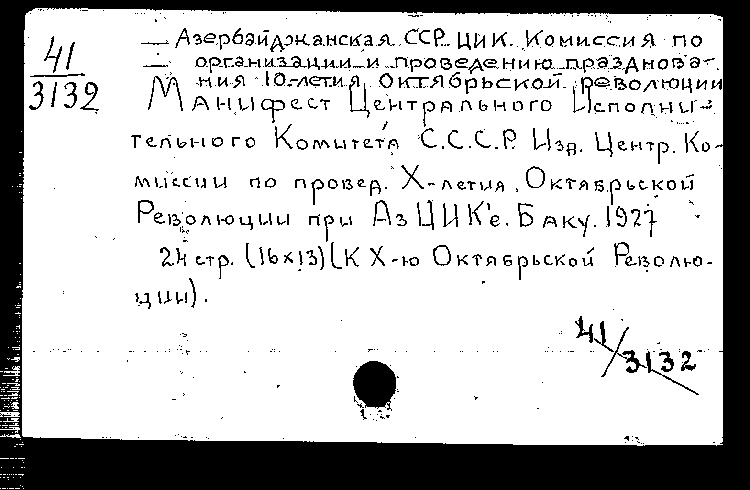 41
3132
— Азербайджанская ССР. ЦИК. Комиссия по
— организации и проведению празднова-
ния 10-летия Октябрьской революции
Манифест Центрального Исполни-
тельного Комитета С.С.С.Р. Изд. Центр. Ко-
миссии по провед. X-летия Октябрьской
Революции при АзЦИК'е. Баку. 1927
24 стр. (16x13) (К X-ю Октябрьской Револю-
ции).
41/3132